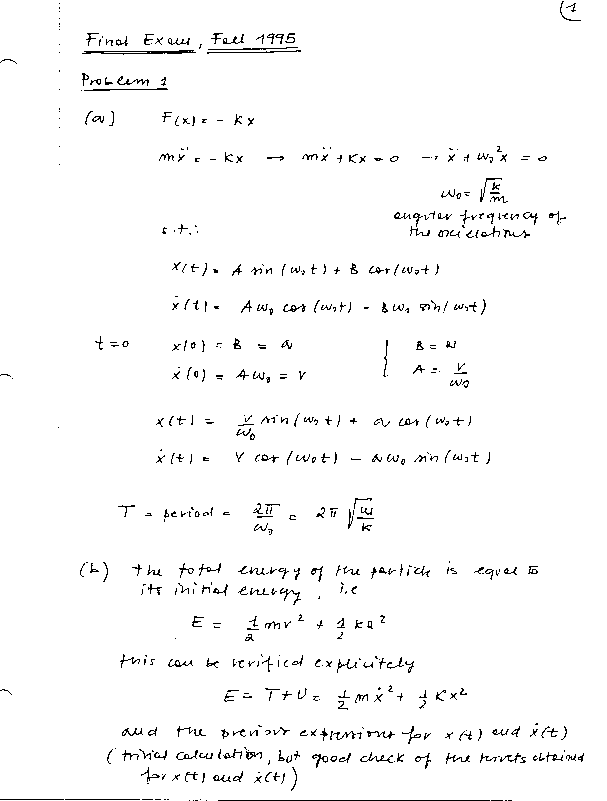 (1
Final Exam, Fall 1995
Problem 1
(a) F(x) = - kx
mẍ = - kx → mẍ + kx = 0 → ẍ + ω₀²x = 0
ω₀ = √(k/m)
angular frequency of
the oscillations
s.t.:
x(t) = A sin(ω₀t) + B cos(ω₀t)
ẋ(t) = Aω₀ cos(ω₀t) - Bω₀ sin(ω₀t)
t=0 x(0) = B = a | B = a
ẋ(0) = Aω₀ = v { A = v/ω₀
x(t) = v/ω₀ sin(ω₀t) + a cos(ω₀t)
ẋ(t) = v cos(ω₀t) - aω₀ sin(ω₀t)
T = period = 2π/ω₀ = 2π √(m/k)
(b) the total energy of the particle is equal to
its initial energy, i.e
E = 1/2 mv² + 1/2 ka²
this can be verified explicitely
E = T+U = 1/2 mẋ² + 1/2 kx²
and the previous expressions for x(t) and ẋ(t)
(trivial calculation, but good check of the results obtained
for x(t) and ẋ(t))